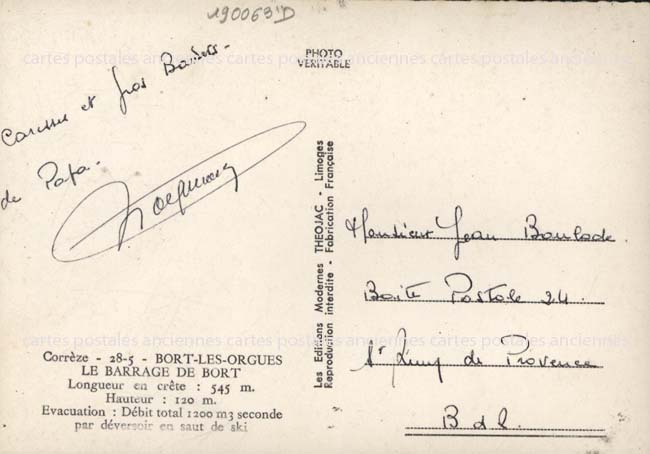 190063 D
PHOTO
VERITABLE
cartes postales anciennes cartes postales anciennes cartes postales anciennes
Caresses et Gros Baisers-
de Papa-
Les Editions Modernes THEOJAC - Limoges
Reproduction interdite - Fabrication Française
Monsieur Jean Boulade
Boite Postale 24.
St Rémy de Provence
B d R.
cartes postales anciennes cartes postales anciennes cartes postales anciennes
Corrèze - 28-5 - BORT-LES-ORGUES
LE BARRAGE DE BORT
Longueur en crête : 545 m.
Hauteur : 120 m.
Evacuation : Débit total 1200 m3 seconde
par déversoir en saut de ski